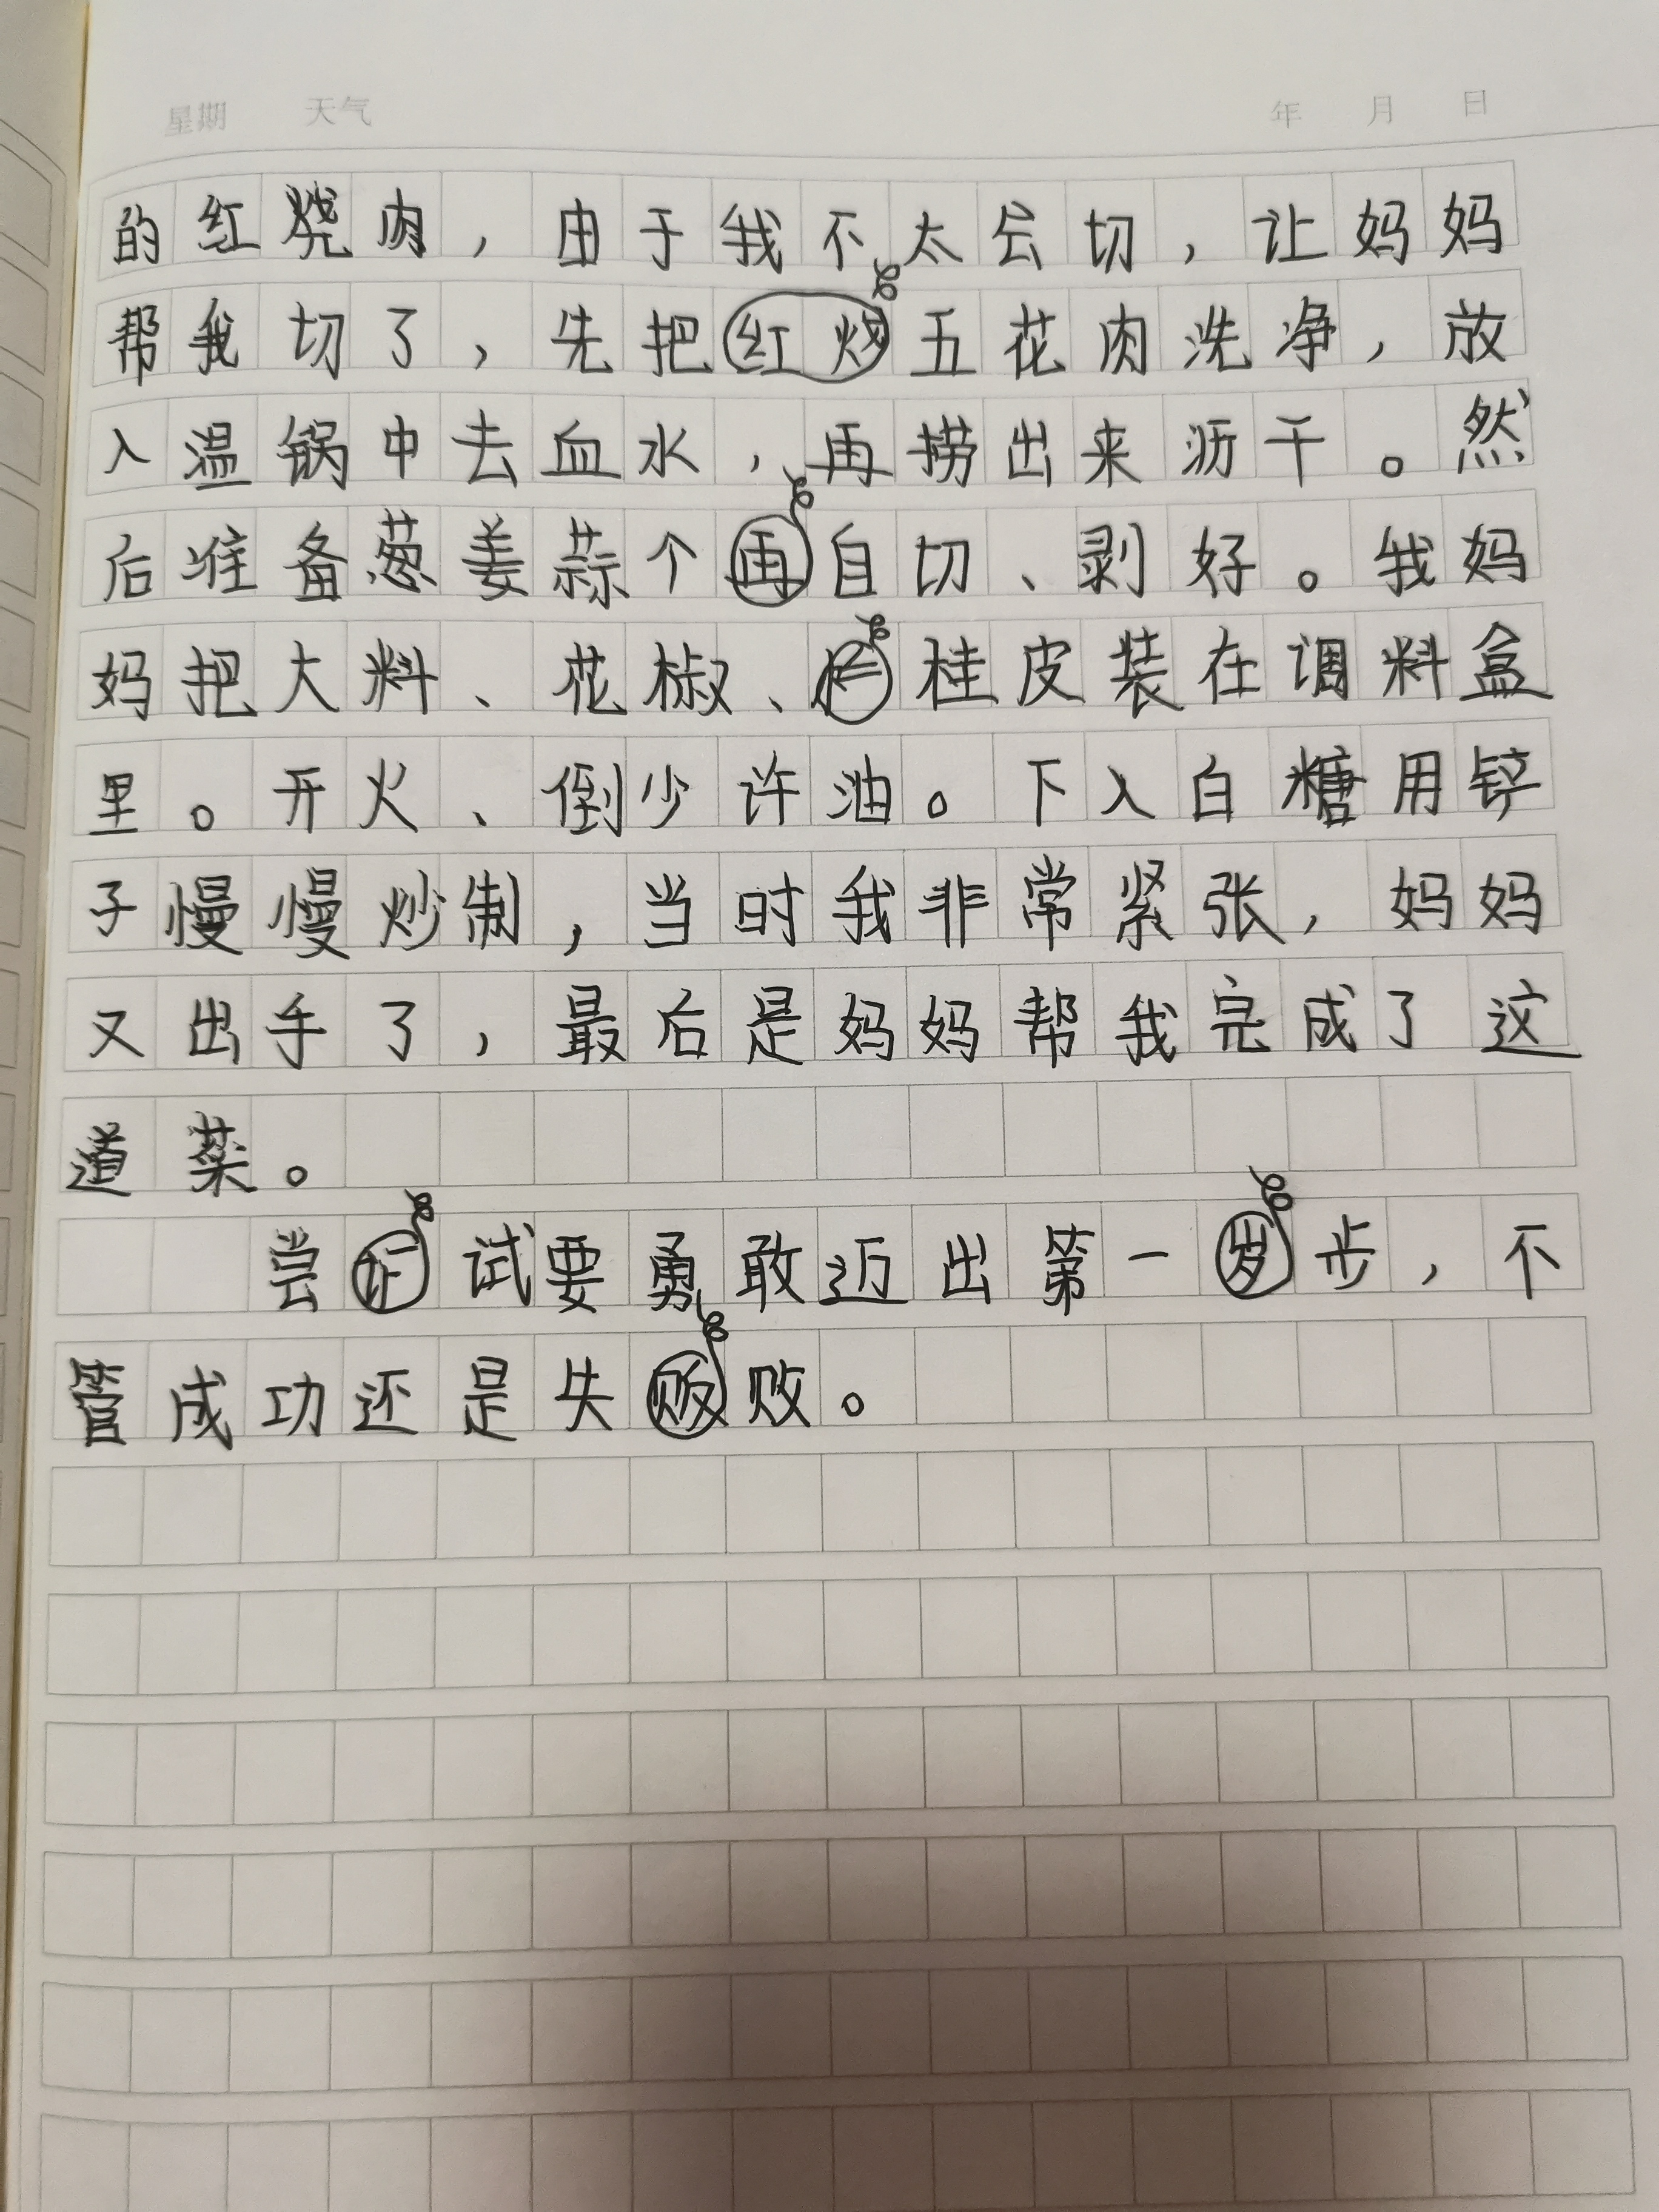 星期 天气 年 月 日
的红烧肉，由于我不太会切，让妈妈
帮我切了，先把红烧五花肉洗净，放
入温锅中去血水，再捞出来沥干。然
后准备葱姜蒜个再自切、剥好。我妈
妈把大料、花椒、桂皮装在调料盒
里。开火、倒少许油。下入白糖用铲
子慢慢炒制，当时我非常紧张，妈妈
又出手了，最后是妈妈帮我完成了这
道菜。
尝试要勇敢迈出第一岁步，不
管成功还是失贩败。